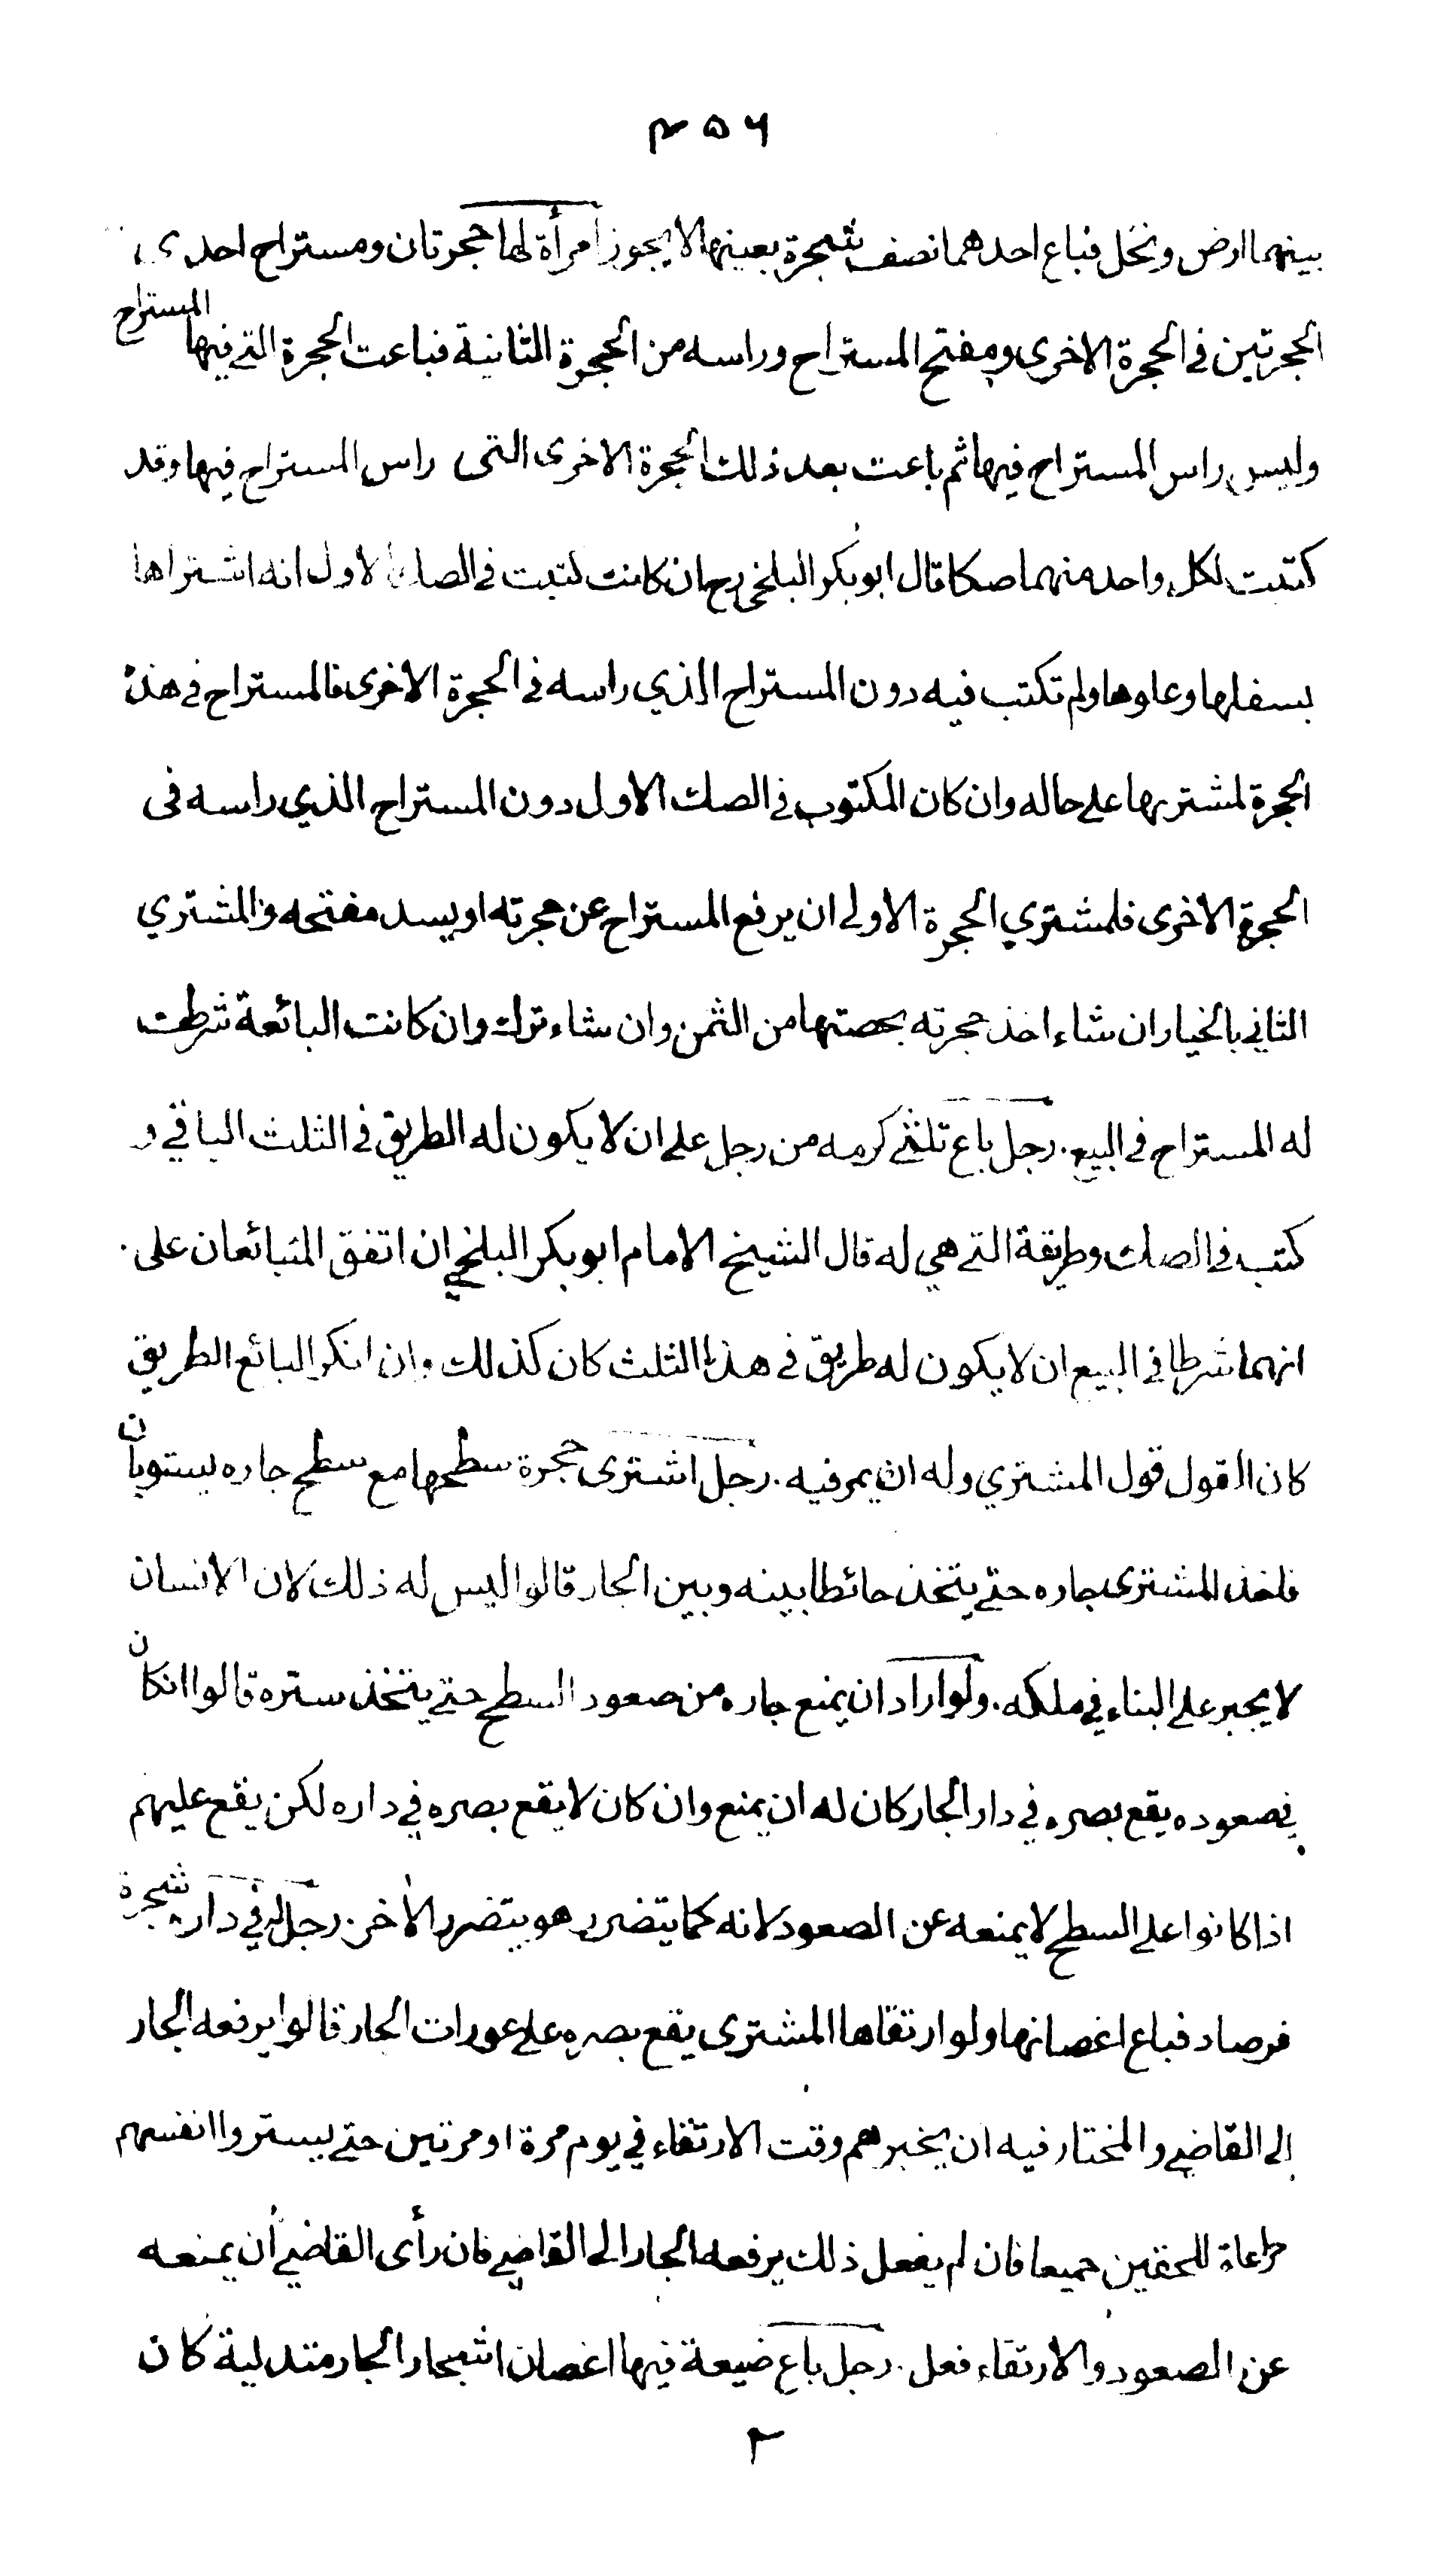 ۴۵۶
بينهما ارض ونخل فباع احدهما نصف شجرة بعينها لا يجوز امرأة لها حجرتان ومستراح احدى
الحجرتين في الحجرة الاخرى ومفتح المستراح وراسه من الحجرة الثانية فباعت الحجرة التي فيها المستراح
وليس راس المستراح فيها ثم باعت بعد ذلك الحجرة الاخرى التى راس المستراح فيها وقد
كتبت لكل واحد منهما صكا قال ابو بكر البلخي رح ان كانت كتبت في الصك الاول انه اشتراها
بسفلها وعلوها ولم تكتب فيه دون المستراح الذي راسه في الحجرة الاخرى فالمستراح في هذه
الحجرة لمشتريها على حاله وان كان المكتوب في الصك الاول دون المستراح الذي راسه فى
الحجرة الاخرى فلمشتري الحجرة الاولى ان يرفع المستراح عن حجرته او يسد مفتحه والمشتري
الثاني بالخيار ان شاء اخذ حجرته بحصتها من الثمن وان شاء ترك وان كانت البائعة شرطت
له المستراح في البيع . رجل باع ثلثي كرمه من رجل على ان لا يكون له الطريق في الثلث الباقي و
كتب في الصك وطريقة التي هي له قال الشيخ الامام ابو بكر البلخي ان اتفق المتبائعان على
انهما شرطا في البيع ان لا يكون له طريق في هذا الثلث كان كذلك وان انكر البائع الطريق
كان القول قول المشتري وله ان يمر فيه . رجل اشترى حجرة سطحها مع سطح جاره يستويان
فاخذ المشترى جاره حتى يتخذ حائطا بينه وبين الجار قالوا ليس له ذلك لان الانسان
لا يجبر على البناء في ملكه . ولو اراد ان يمنع جاره من صعود السطح حتى يتخذ سترة قالوا انكان
في صعوده يقع بصره في دار الجار كان له ان يمنع وان كان لا يقع بصره في داره لكن يقع عليهم
اذا كانوا على السطح لا يمنعه عن الصعود لانه كما يتضرر هو يتضرر الأخر . رجل له في داره شجرة
فرصاد فباع اغصانها ولو ارتقاها المشترى يقع بصره على عورات الجار قالوا يرفعه الجار
الى القاضي والمختار فيه ان يخبرهم وقت الارتقاء في يوم مرة او مرتين حتى يستروا انفسهم
مراعاة للحقين جميعا فان لم يفعل ذلك يرفعه الجار الى القاضي فان رأى القاضي أن يمنعه
عن الصعود والارتقاء فعل . رجل باع ضيعة فيها اغصان اشجار الجار متدلية كان
۲